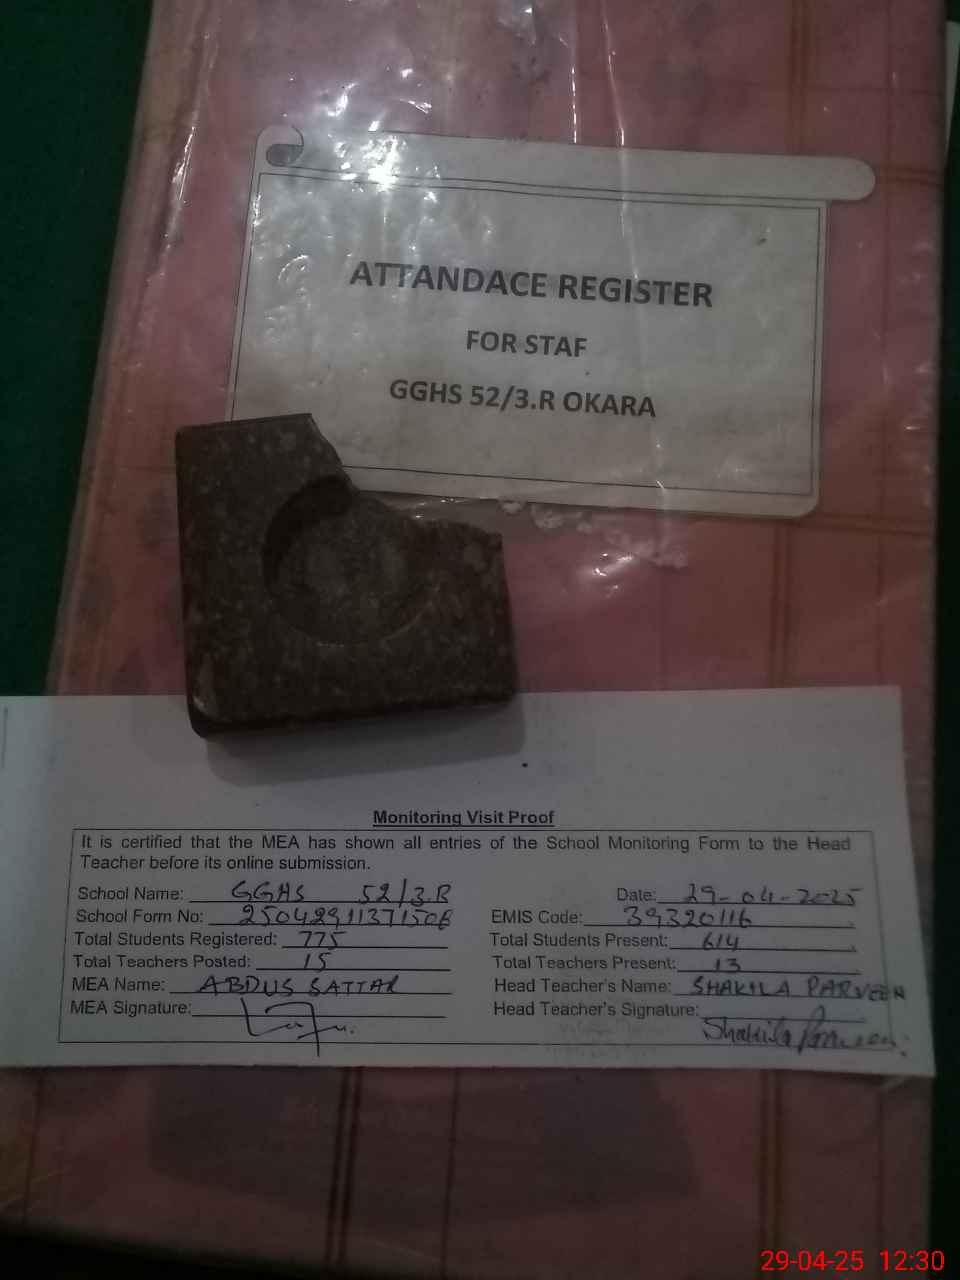 ATTANDACE REGISTER
FOR STAF
GGHS 52/3.R OKARA
Monitoring Visit Proof
It is certified that the MEA has shown all entries of the School Monitoring Form to the Head
Teacher before its online submission.
School Name: GGHS 52/3.R Date: 29-04-2025
School Form No: EMIS Code: 39320116
Total Students Registered: 775 Total Students Present: 614
Total Teachers Posted: 15 Total Teachers Present: 13
MEA Name: ABDUS SATTAR Head Teacher's Name: SHAKILA PARVEEN
MEA Signature: Head Teacher's Signature: Shakila Parveen
29-04-25 12:30